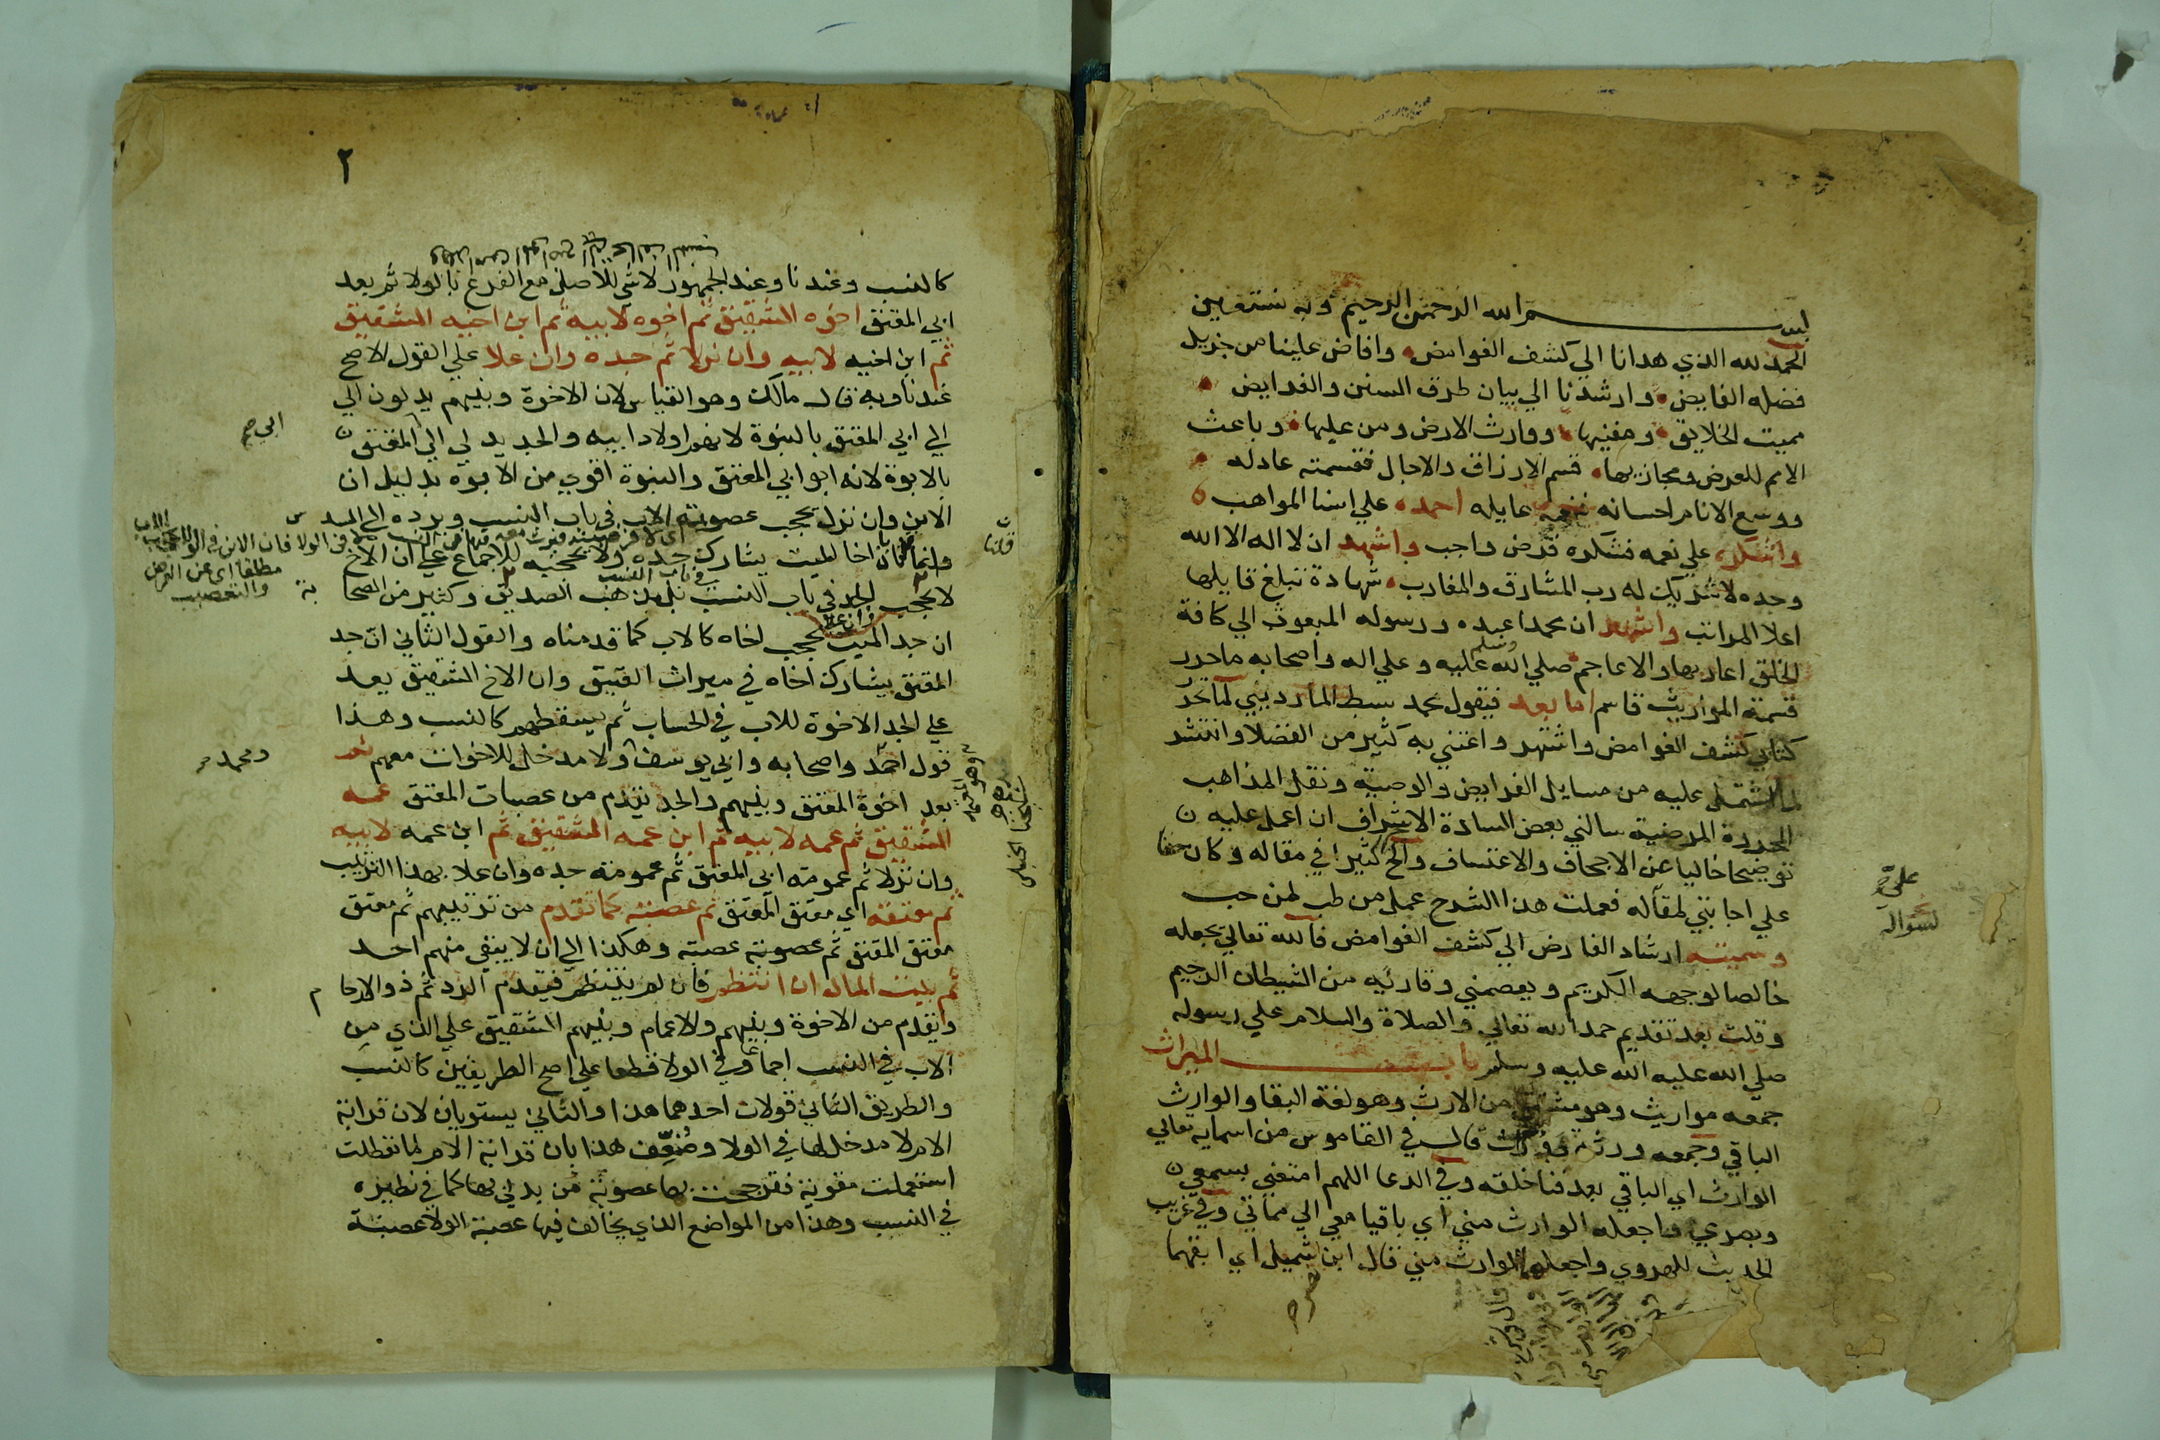 بسم الله الرحمن الرحيم وبه نستعين
الحمد لله الذي هدانا الي كشف الغوامض وافاض علينا من جزيل
فضله الفايض وارشدنا الي بيان طرق السنن والفرايض
مميت الخلايق ومفنيها ووارث الارض ومن عليها وباعث
الامم للعرض ومجازيها قسم الارزاق والاجال فقسمته عادله
ووسع الانام احسانه فنعمه عايله احمده علي اسنا المواهب
واشكره علي نعمه فشكره فرض واجب واشهد ان لا اله الا الله
وحده لا شريك له رب المشارق والمغارب شهادة تبلغ قايلها
اعلا المراتب واشهد ان محمدا عبده ورسوله المبعوث الي كافة
الخلق اعاربها والاعاجم صلي الله عليه وسلم وعلي اله واصحابه ما حرر
قسمة المواريث قاسم اما بعد فيقول محمد سبط المارديني لما تحرر
كتابي كشف الغوامض واشتهر واعتني به كثير من الفضلا وانتشر
اشتمل عليه من مسايل الفرايض والوصية ونقل المذاهب
المحررة المرضية سالني بعض السادة الاشراف ان اعمل عليه
توضيحا خاليا عن الاجحاف والاعتساف والح كثيرا في مقاله وكان حقا
علي اجابتي لمقاله فعملت هذا الشرح عمل من طب لمن حب
وسميته ارشاد الفارض الي كشف الغوامض فالله تعالي يجعله
خالصا لوجهه الكريم ويعصمني وقارئه من الشيطان الرجيم
وقلت بعد تقديم حمد الله تعالي والصلاة والسلام علي رسوله
صلي الله عليه الله عليه وسلم باب الميراث
جمعه مواريث وهو مشتق من الارث وهو لغة البقا والوارث
الباقي وجمعه ورثة قال في القاموس من اسمايه تعالي
الوارث اي الباقي بعد فنا خلقه وفي الدعا اللهم امتعني بسمعي
وبصري واجعله الوارث مني اي باقيا معي الي مماتي وفي غريب
الحديث للهروي واجعلهما الوارث مني قال ابن شميل اي ابقهما
علي
لسؤاله
٢
كالنسب وعندنا وعند الجمهور لا شي للاصل مع الفرع بالولا ثم بعد
ابي المعتق اخوه الشقيق ثم اخوه لابيه ثم ابن اخيه الشقيق
ثم ابن اخيه لابيه وان نزلا ثم جده وان علا علي القول الاصح
عندنا وبه قال مالك وهو القياس لان الاخوة وبنيهم يدلون الي
الي ابي المعتق بالبنوة لانهم اولاد ابيه والجد يدلي الي المعتق
بالابوة لانه ابو ابي المعتق والبنوة اقوي من الابوة بدليل ان
الابن وان نزل يحجب عصوبته الاب في باب النسب ويرده الي السدس
وانما كان اخا الميت يشارك جده ولا يحجبه للاجماع علي ان الاخ
لا يحجب الجد في باب النسب بل مذهب الصديق وكثير من الصحابة
ان جد الميت وان علا يحجب اخاه كالاب كما قدمناه والقول الثاني ان جد
المعتق يشارك اخاه في ميراث العتيق وان الاخ الشقيق يعد
علي الجد الاخوة للاب في الحساب ثم يسقطهم كالنسب وهذا
قول احمد واصحابه وابي يوسف ولا مدخل للاخوات معهم ثم
بعد اخوة المعتق وبنيهم والجد يقدم من عصبات المعتق عمه
الشقيق ثم عمه لابيه ثم ابن عمه الشقيق ثم ابن عمه لابيه
وان نزلا ثم عمومة ابي المعتق ثم عمومة جده وان علا بهذا الترتيب
ثم معتقه اي معتق المعتق ثم عصبته كما تقدم من ترتيبهم ثم معتق
معتق المعتق ثم عصوبة عصبته وهكذا الي ان لا يبقي منهم احد
ثم بيت المال ان انتظم فان لم ينتظم فيقدم الرد ثم ذو الارحام
ويقدم من الاخوة وبنيهم والاعمام وبنيهم الشقيق علي الذي من
الاب في النسب اجماعا وفي الولا قطعا علي اصح الطريقين كالنسب
والطريق الثاني قولان احدهما هذا والثاني يستويان لان قرابة
الام لا مدخل لها في الولا وضعّف هذا بان قرابة الام لما تعطلت
استعملت مقوية فترجحت بها عصوبة من يدلي بها كما في نظيره
في النسب وهذا من المواضع الذي يخالف فيها عصبة الولا عصبة
قلنا
ومحمد
مطلقا اي عن الفرض
والتعصيب